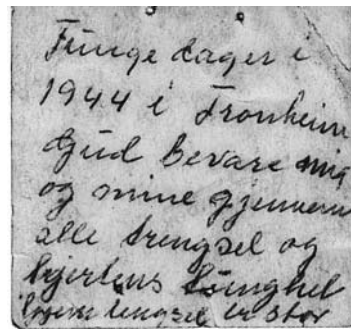 Tunge dager i
1944 i Tronheim
Gud bevare mig
og mine gjennem
alle trengsel og
hjertens trenghet
lengsel er stor